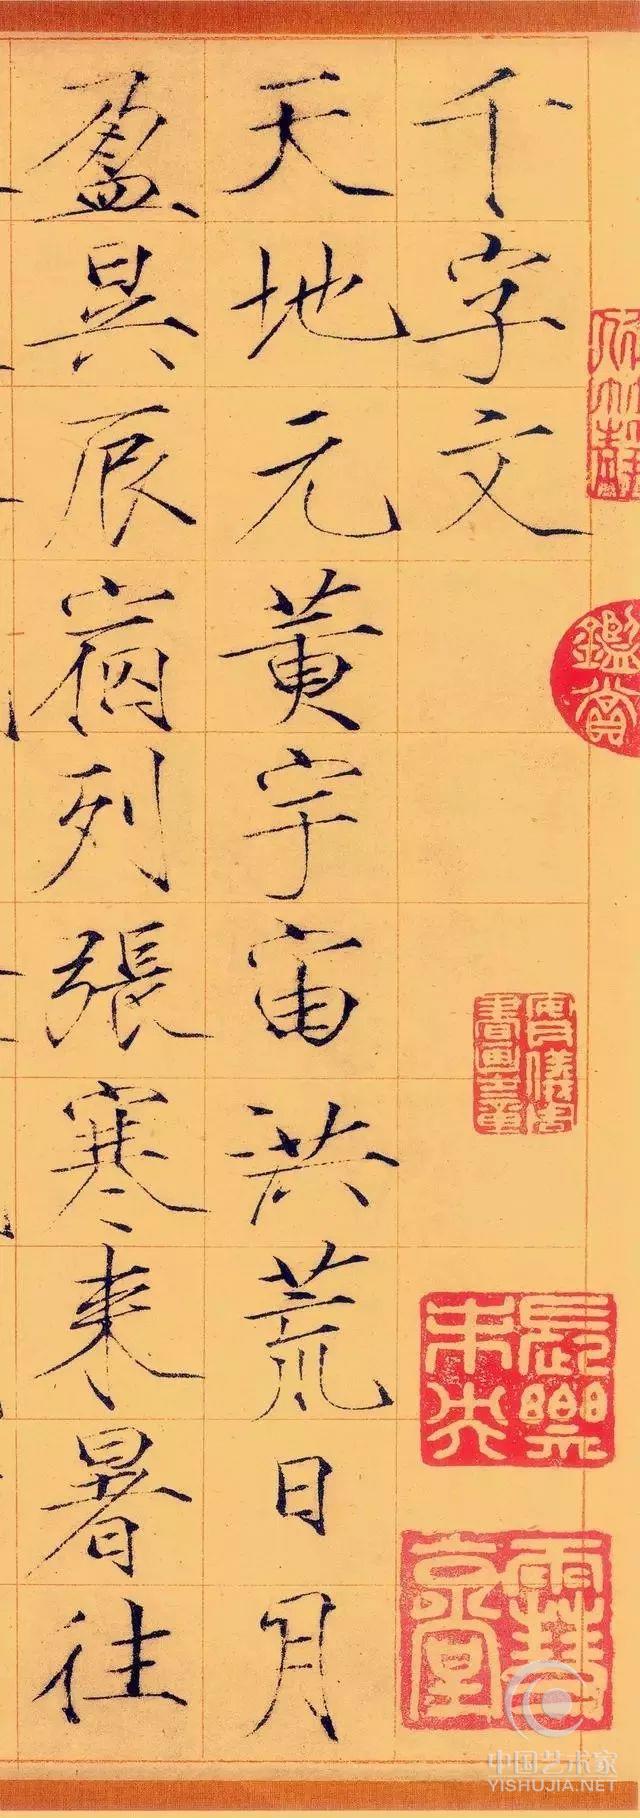 千字文
天地元黄宇宙洪荒日月
盈昃辰宿列張寒来暑往
鑑賞
長樂未央
中国艺术家
YISHUJIA.NET